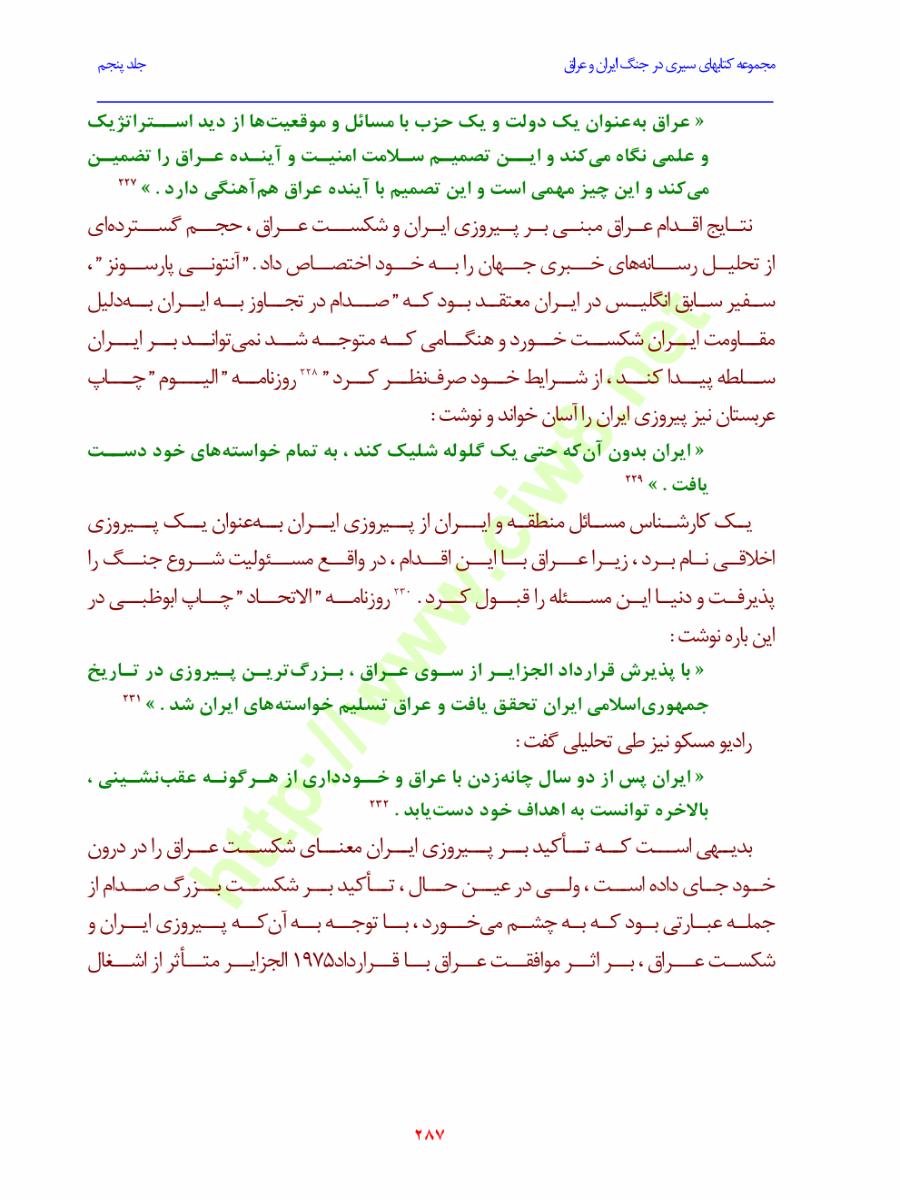 مجموعه کتابهای سیری در جنگ ایران و عراق
جلد پنجم
« عراق به‌عنوان یک دولت و یک حزب با مسائل و موقعیت‌ها از دید استراتژیک
و علمی نگاه می‌کند و این تصمیم سلامت امنیت و آینده عراق را تضمین
می‌کند و این چیز مهمی است و این تصمیم با آینده عراق هم‌آهنگی دارد . » ۲۲۷
نتایج اقدام عراق مبنی بر پیروزی ایران و شکست عراق ، حجم گسترده‌ای
از تحلیل رسانه‌های خبری جهان را به خود اختصاص داد . ”آنتونی پارسونز ” ،
سفیر سابق انگلیس در ایران معتقد بود که ” صدام در تجاوز به ایران به‌دلیل
مقاومت ایران شکست خورد و هنگامی که متوجه شد نمی‌تواند بر ایران
سلطه پیدا کند ، از شرایط خود صرف‌نظر کرد ” ۲۲۸ روزنامه ” الیوم ” چاپ
عربستان نیز پیروزی ایران را آسان خواند و نوشت :
« ایران بدون آن‌که حتی یک گلوله شلیک کند ، به تمام خواسته‌های خود دست
یافت . » ۲۲۹
یک کارشناس مسائل منطقه و ایران از پیروزی ایران به‌عنوان یک پیروزی
اخلاقی نام برد ، زیرا عراق با این اقدام ، در واقع مسئولیت شروع جنگ را
پذیرفت و دنیا این مسئله را قبول کرد . ۲۳۰ روزنامه ” الاتحاد ” چاپ ابوظبی در
این باره نوشت :
« با پذیرش قرارداد الجزایر از سوی عراق ، بزرگ‌ترین پیروزی در تاریخ
جمهوری‌اسلامی ایران تحقق یافت و عراق تسلیم خواسته‌های ایران شد . » ۲۳۱
رادیو مسکو نیز طی تحلیلی گفت :
« ایران پس از دو سال چانه‌زدن با عراق و خودداری از هرگونه عقب‌نشینی ،
بالاخره توانست به اهداف خود دست‌یابد . ۲۳۲
بدیهی است که تأکید بر پیروزی ایران معنای شکست عراق را در درون
خود جای داده است ، ولی در عین حال ، تأکید بر شکست بزرگ صدام از
جمله عبارتی بود که به چشم می‌خورد ، با توجه به آن‌که پیروزی ایران و
شکست عراق ، بر اثر موافقت عراق با قرارداد۱۹۷۵ الجزایر متأثر از اشغال
۲۸۷
http://www.ciw8.net